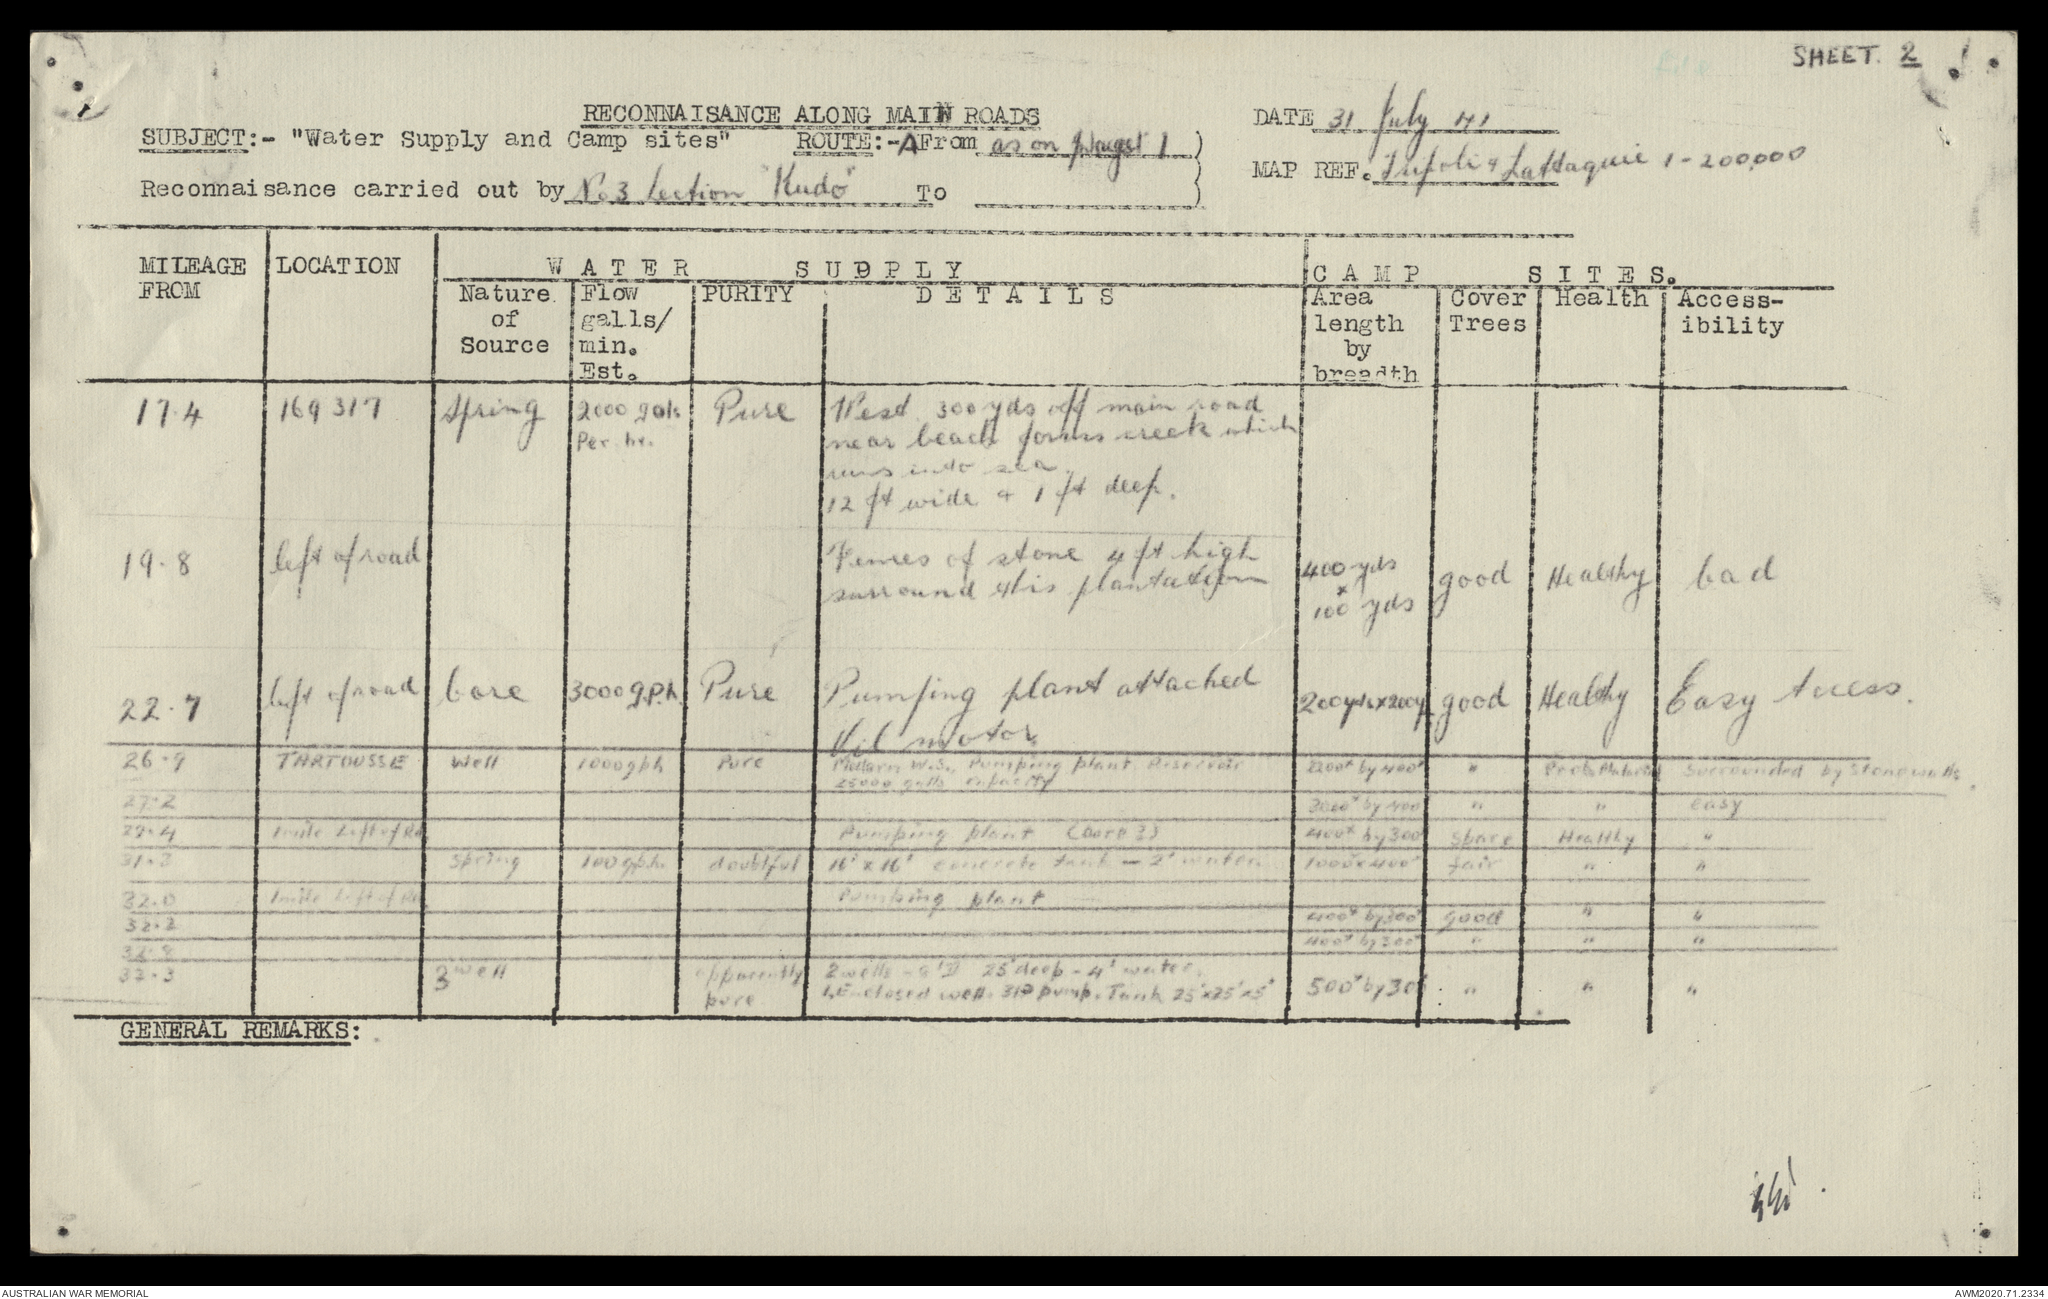 SHEET. 2
RECONNAISANCE ALONG MAIN ROADS
SUBJECT:- "Water Supply and Camp sites" ROUTE:-A From as on page 1
DATE 31 July 41
MAP REF. Tripoli & Lattaquie 1-200,000
Reconnaisance carried out by No 3 Section "Kudo" To
MILEAGE FROM
LOCATION
WATER SUPPLY
CAMP SITES.
Nature of Source
Flow galls/ min. Est.
PURITY
DETAILS
Area length by breadth
Cover Trees
Health
Access- ibility
17.4 169317 Spring 2000 gals Pure West 300 yds off main road
Per hr. near beach forms creek which
runs into sea.
12 ft wide & 1 ft deep.
19.8 left of road Fences of stone 4 ft high 400 yds good Healthy bad
surround this plantation x 100 yds
22.7 left of road bore 3000 g.p.h. Pure Pumping plant attached 200yds x 200y good Healthy Easy Access.
motor
26.9 TARTOUSSE Well 1000gph Pure Modern W.S., Pumping plant. Reservoir by 400x " Prob. Malarial Surrounded by stonewalls
25000 galls capacity
27.2 3000x by 400 " " easy
29.4 1 mile Left of Rd Pumping plant (bore?) 400x by 300x Sparce Healthy "
31.2 Spring 100gph. doubtful 16' x 16' concrete tank - 2' water. 1000x400x fair " "
32.0 1 mile Left of Rd Pumping plant
32.2 400x by 300x good " "
400x by 300x " " "
32.3 3 well apparently 2 wells - 8'D 25' deep - 4' water. 500x by 30 " " "
pure 1, Enclosed well. pump. Tank 25'x25'x5'
GENERAL REMARKS:
AUSTRALIAN WAR MEMORIAL
AWM2020.71.2334